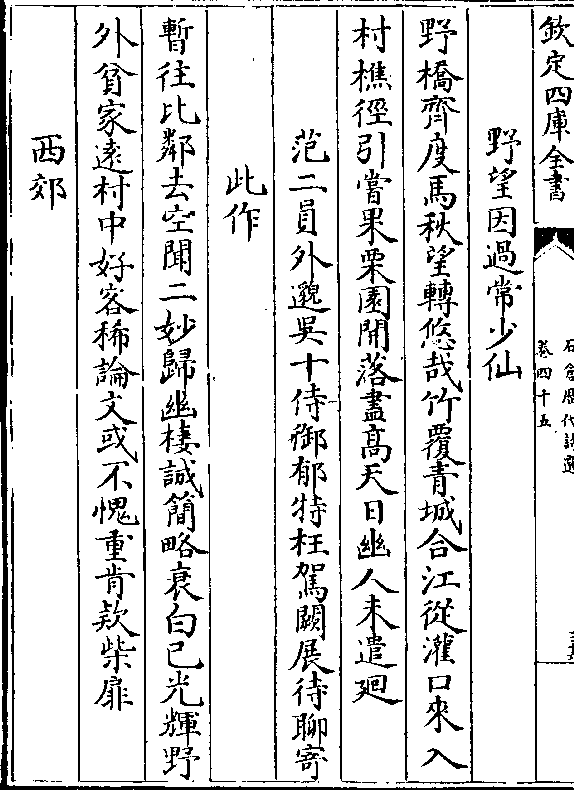 欽定四庫全書
石倉歷代詩選
卷四十五
野望因過常少仙
野橋齊度馬秋望轉悠哉竹覆青城合江從灌口來入
村樵徑引嘗果栗園開落盡高天日幽人未遣廻
范二員外邈吳十侍御郁特枉駕闕展待聊寄
此作
暫往比鄰去空聞二妙歸幽棲誠簡略衰白已光輝野
外貧家遠村中好客稀論文或不愧重肯欵柴扉
西郊